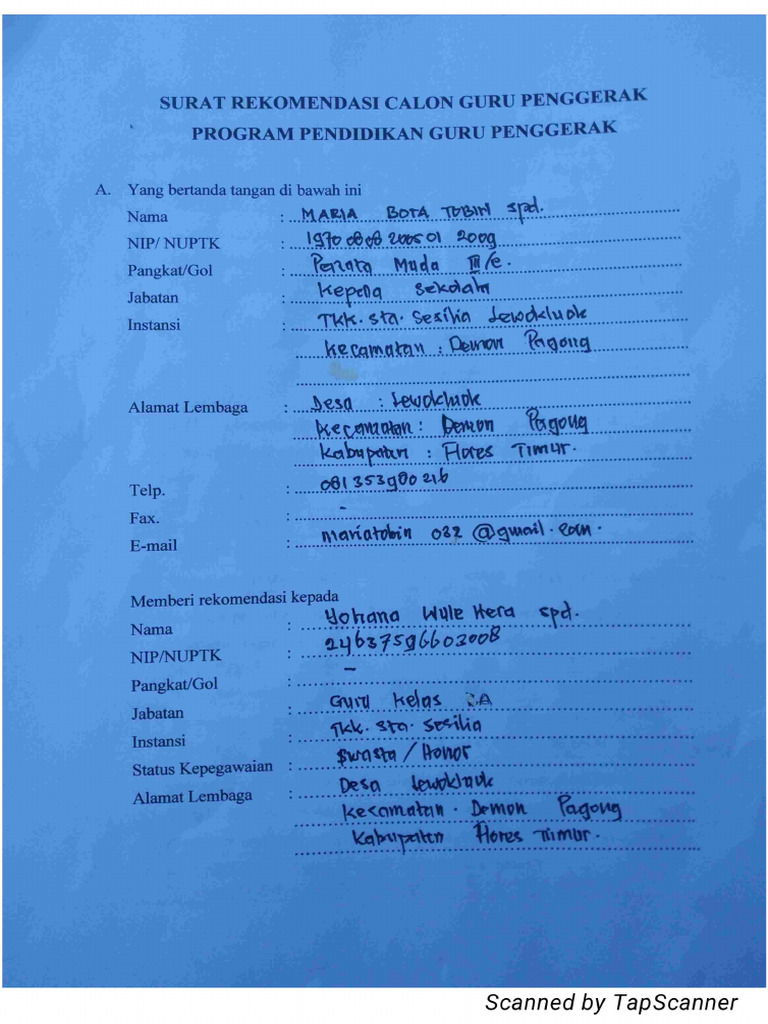 SURAT REKOMENDASI CALON GURU PENGGERAK
PROGRAM PENDIDIKAN GURU PENGGERAK
A. Yang bertanda tangan di bawah ini
Nama : MARIA BOTA TOBIN spd.
NIP/ NUPTK : 19700808200501 2009
Pangkat/Gol : Penata Muda III/c.
Jabatan : Kepala Sekolah
Instansi : TKK. sta. Sesilia Lewokluok
Kecamatan : Demon Pagong
Alamat Lembaga : Desa : Lewokluok
Kecamatan : Demon Pagong
Kabupaten : Flores Timur.
Telp. : 081353900216
Fax. : -
E-mail : mariatobin 032 @gmail.com.
Memberi rekomendasi kepada
Nama : Yohana Wule Hera spd.
NIP/NUPTK : 2463759660
Pangkat/Gol : -
Jabatan : Guru Kelas A
Instansi : TKK. sta. Sesilia
Status Kepegawaian : Swasta / Honor
Alamat Lembaga : Desa Lewokluok
Kecamatan. Demon Pagong
Kabupaten Flores Timur.
Scanned by TapScanner